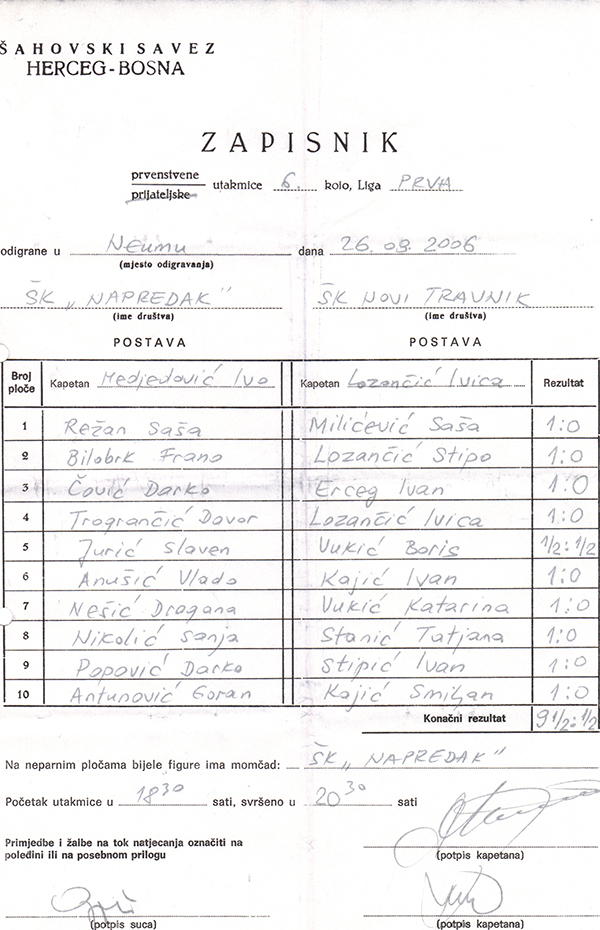 ŠAHOVSKI SAVEZ
HERCEG-BOSNA
ZAPISNIK
prvenstvene
prijateljske
utakmice 6. kolo, Liga PRVA
odigrane u NEUMU dana 26.08.2006
(mjesto odigravanja)
ŠK „NAPREDAK" ŠK NOVI TRAVNIK
(ime društva) (ime društva)
POSTAVA POSTAVA
Broj ploče Kapetan Medjedović Ivo Kapetan Lozančić Ivica Rezultat
1 Režan Saša Milićević Saša 1:0
2 Bilobrk Frano Lozančić Stipo 1:0
3 Čović Darko Erceg Ivan 1:0
4 Trogrančić Davor Lozančić Ivica 1:0
5 Jurić Slaven Vukić Boris 1/2:1/2
6 Anušić Vlado Kajić Ivan 1:0
7 Nešić Dragana Vukić Katarina 1:0
8 Nikolić Sanja Stanić Tatjana 1:0
9 Popović Darko Stipić Ivan 1:0
10 Antunović Goran Kajić Smiljan 1:0
Konačni rezultat 9 1/2:1/2
Na neparnim pločama bijele figure ima momčad: ŠK „NAPREDAK"
Početak utakmice u 18 30 sati, svršeno u 20 30 sati
Primjedbe i žalbe na tok natjecanja označiti na
poleđini ili na posebnom prilogu
(potpis kapetana)
(potpis suca) (potpis kapetana)